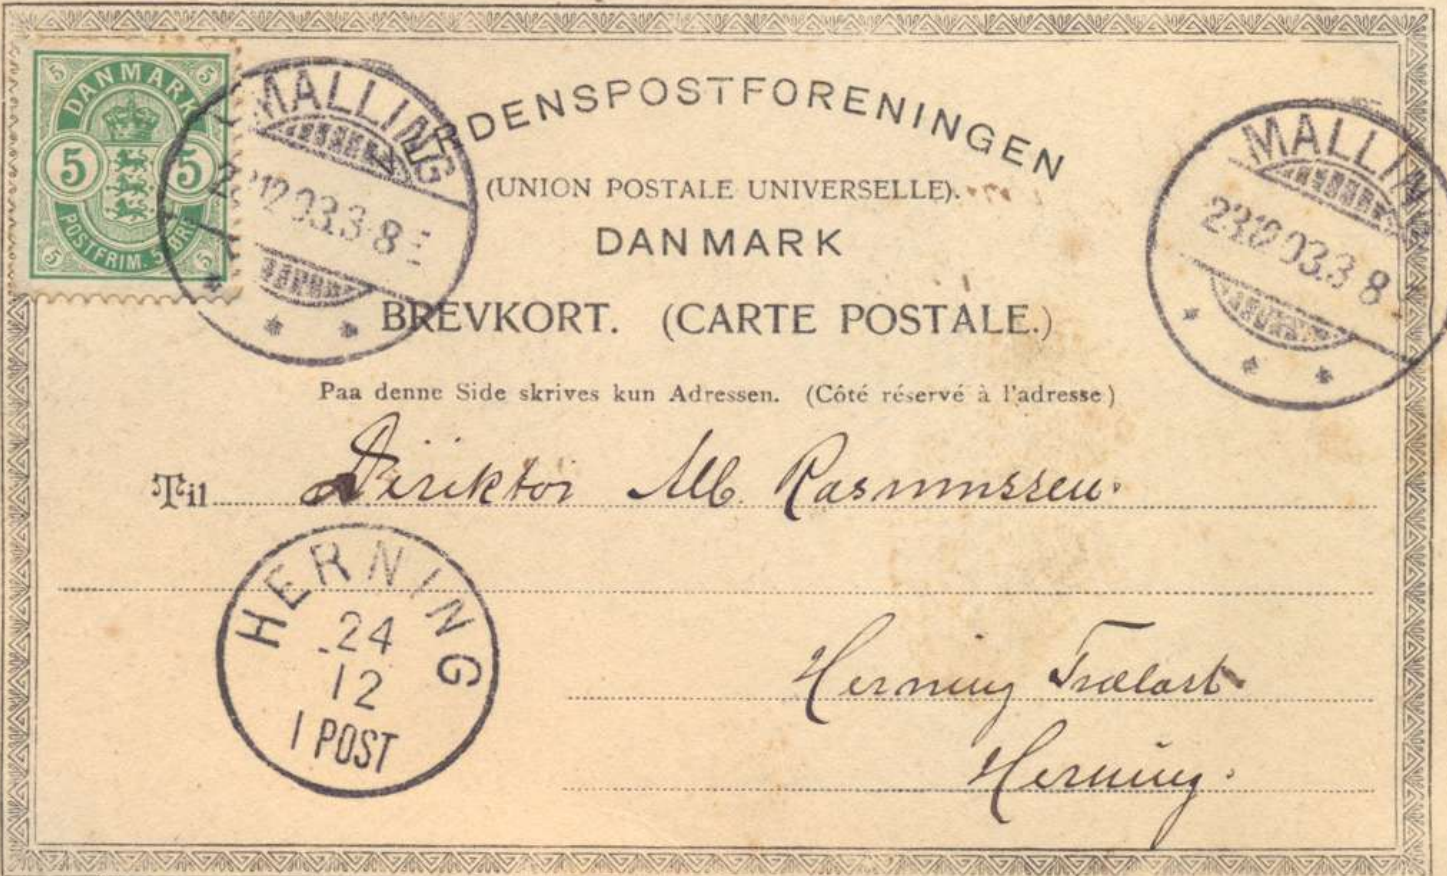 5 5
DANMARK
5 5
POSTFRIM. 5 ØRE
5 5
MALLING
23.12.03.3-8 E
RDENSPOSTFORENINGEN
(UNION POSTALE UNIVERSELLE).
DANMARK
BREVKORT. (CARTE POSTALE.)
Paa denne Side skrives kun Adressen. (Côté réservé à l'adresse)
MALLIN
23.12.03.3-8
Til Direktør Alb. Rasmussen.
HERNING
24
12
1 POST
Herning Trælast
Herning.